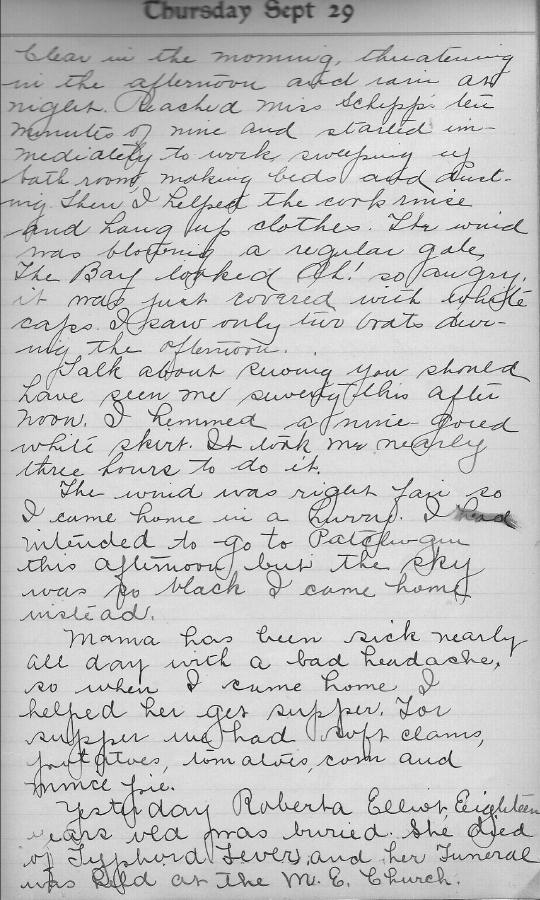 Thursday Sept 29
Clear in the morning, threatening
in the afternoon and rain at
night. Reached Miss Schipp's ten
minutes of nine and started im-
mediately to work, sweeping up
bath room, making beds and dust-
ing. Then I helped the cook rinse
and hang up clothes. The wind
was blowing a regular gale,
The Bay looked Oh! so angry,
it was just covered with white
caps. I saw only two boats dur-
ing the afternoon.
Talk about sewing you should
have seen me sewing this after
noon. I hemmed a nine gored
white skirt. It took me nearly
three hours to do it.
The wind was right fair so
I came home in a hurry. I had
intended to go to Patchogue
this afternoon, but the sky
was so black I came home
instead.
Mama has been sick nearly
all day with a bad headache,
so when I came home I
helped her get supper. For
supper we had soft clams,
potatoes, tomatoes, corn and
mince pie.
Yesterday Roberta Elliot, Eighteen
years old was buried. She died
of Typhord Fever, and her Funeral
was held at the M. E. Church.